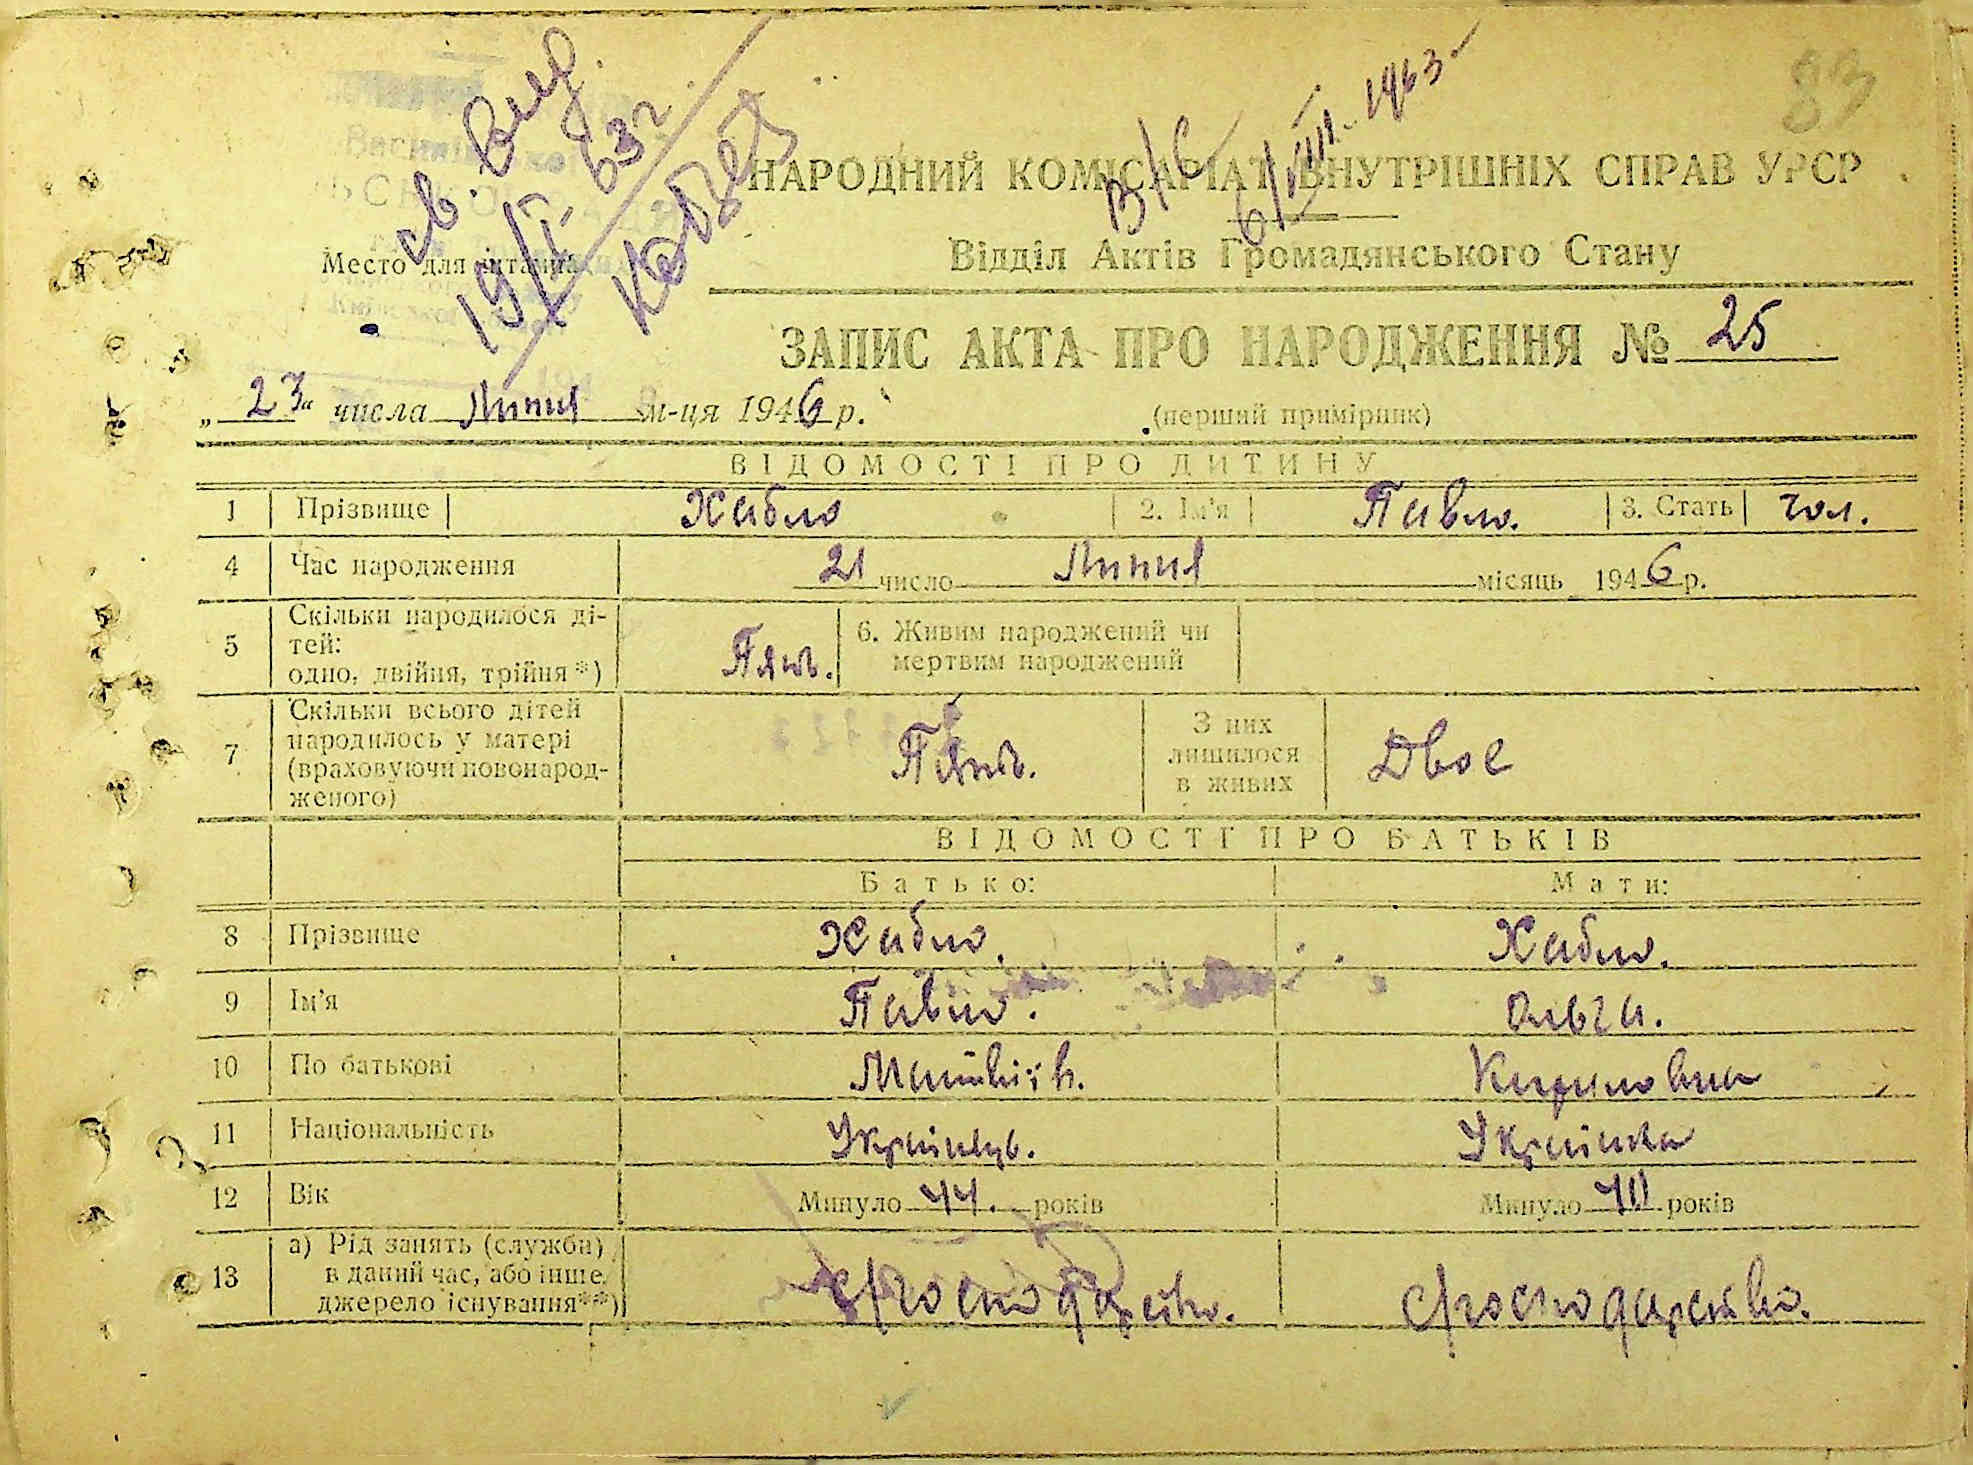 83
св. вид.
19/I-63 г.
В/С 6/VIII-1963-
НАРОДНИЙ КОМІСАРІАТ ВНУТРІШНІХ СПРАВ УРСР
Відділ Актів Громадянського Стану
Место для штампа
ЗАПИС АКТА ПРО НАРОДЖЕННЯ № 25
„23“ числа Липня м-ця 1946 р.
(перший примірник)
ВІДОМОСТІ ПРО ДИТИНУ
1 Прізвище Хабло 2. Ім'я Павло. 3. Стать чол.
4 Час народження 21 число Липня місяць 1946 р.
5 Скільки народилося ді-
тей:
одно, двійня, трійня *) Пять.
6. Живим народжений чи
мертвим народжений
7 Скільки всього дітей
народилось у матері
(враховуючи новонарод-
женого) Пять.
З них
лишилося
в живих Двоє
ВІДОМОСТІ ПРО БАТЬКІВ
Батько: Мати:
8 Прізвище Хабло. Хабло.
9 Ім'я Павло. Ольга.
10 По батькові Матвіїв. Кириловна
11 Національність Українець. Українка
12 Вік Минуло 44. років Минуло 40 років
13 а) Рід занять (служби)
в даний час, або інше
джерело існування**) с/господарство. с/господарство.